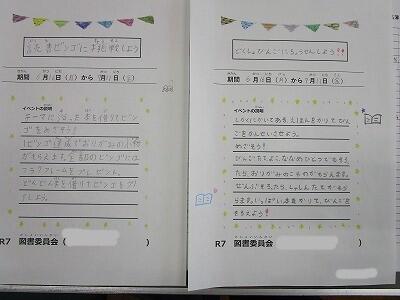 読書ビンゴに挑戦しよう
期間 6月 日(月)から 7月11日(金)
イベントの説明
テーマに沿った本を借りてビン
ゴをめざそう!
1ビンゴ達成でおりがみの小物
がもらえます。全部のビンゴには
フォトフレームをプレゼント。
どんどん本を借りてビンゴをクリ
アしよう。
R7 図書委員会( )
どくしょびんごにちょうせんしよう!!
期間 6月 日(月)から 7月11日(金)
イベントの説明
しかくにかいてある、えほんをかりて、びん
ごをかんせいさせよう。
めざそう!
びんごたて、よこ、ななめひとつでもそろっ
たら、おりがみのこものがもらえます。
ぜんぶそろったら、しゃしんたてがもら
えます。いっぱい本をかりて、びんごを
そろえよう!
R7 図書委員会( )